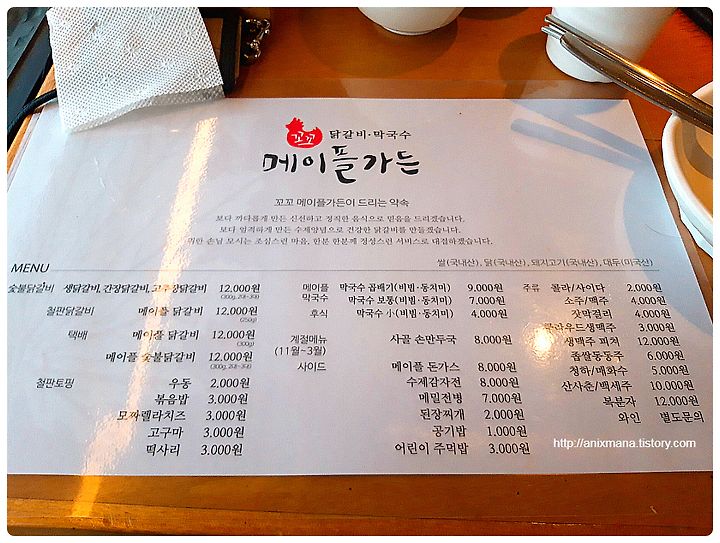 꼬꼬 닭갈비·막국수
메이플가든
꼬꼬 메이플가든이 드리는 약속
보다 까다롭게 만든 신선하고 정직한 음식으로 믿음을 드리겠습니다.
보다 엄격하게 만든 수제양념으로 건강한 닭갈비를 만들겠습니다.
귀한 손님 모시는 조심스런 마음, 한분 한분께 정성스런 서비스로 대접하겠습니다.
쌀(국내산), 닭(국내산), 돼지고기(국내산), 대두(미국산)
MENU
숯불닭갈비 생닭갈비, 간장닭갈비, 고추장닭갈비 12,000원
(300g, 2대~3대)
철판닭갈비 메이플 닭갈비 12,000원
(250g)
택배 메이플 닭갈비 12,000원
(300g)
메이플 숯불닭갈비 12,000원
(300g, 2대~3대)
철판토핑 우동 2,000원
볶음밥 3,000원
모짜렐라치즈 3,000원
고구마 3,000원
떡사리 3,000원
메이플 막국수 곱빼기(비빔·동치미) 9,000원
막국수 막국수 보통(비빔·동치미) 7,000원
후식 막국수 小(비빔·동치미) 4,000원
계절메뉴 사골 손만두국 8,000원
(11월~3월)
사이드 메이플 돈가스 8,000원
수제감자전 8,000원
메밀전병 7,000원
된장찌개 2,000원
공기밥 1,000원
어린이 주먹밥 3,000원
주류 콜라/사이다 2,000원
소주/맥주 4,000원
잣막걸리 4,000원
클라우드생맥주 3,000원
생맥주 피쳐 12,000원
좁쌀동동주 6,000원
청하/매화수 5,000원
산사춘/백세주 10,000원
복분자 12,000원
와인 별도문의
http://anixmana.tistory.com